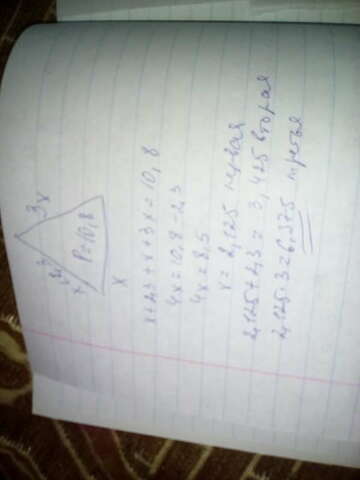 3x
x+2,3
P=10,8
x
x+2,3+x+3x=10,8
4x=10,8-2,3
4x=8,5
x=2,125 первая
2,125+2,3=3,425 вторая
2,125·3=6,375 третья